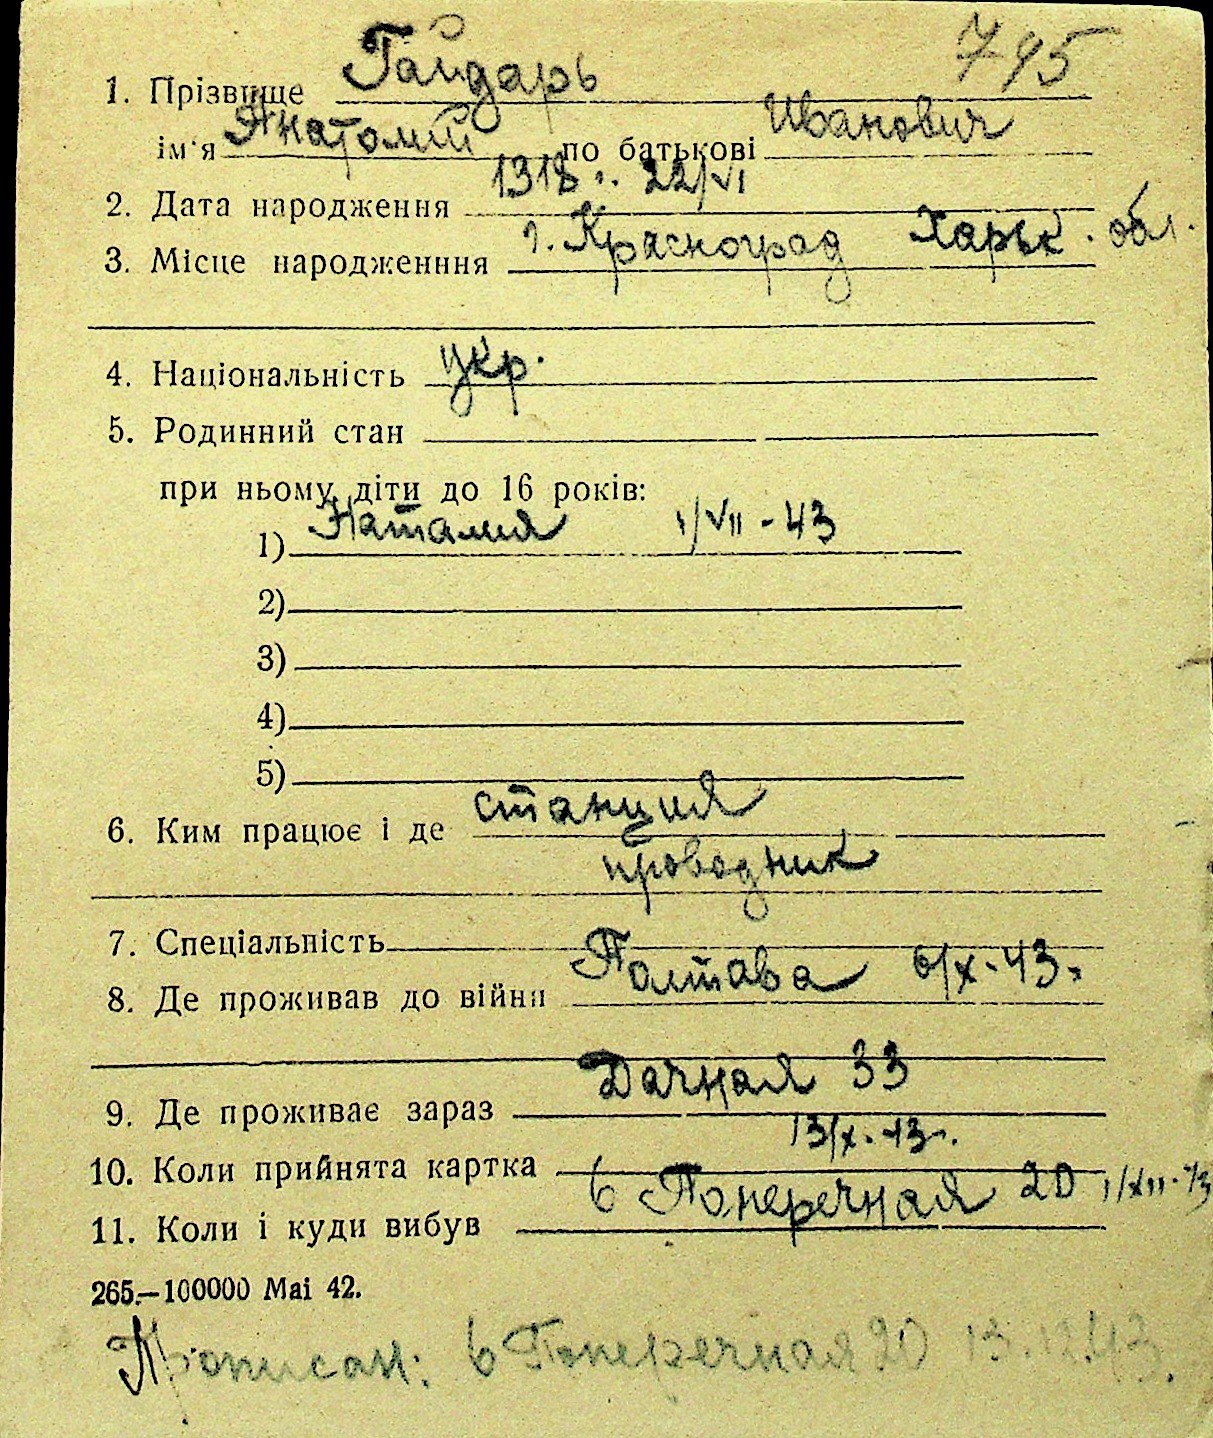 795
1. Прізвище Гайдарь
ім'я Анатолий по батькові Иванович
2. Дата народження 1918 г. 22/VI
3. Місце народженння г. Красноград Харьк. обл.
4. Національність укр.
5. Родинний стан
при ньому діти до 16 років:
1) Наталия 1/VII - 43
2)
3)
4)
5)
6. Ким працює і де станция
проводник
7. Спеціальність
8. Де проживав до війни Полтава 6/X - 43 г.
9. Де проживає зараз Дачная 33
10. Коли прийнята картка 13/X - 43 г.
11. Коли і куди вибув 6 Поперечная 20 1/XII - 43
265.—100000 Mai 42.
Прописан: 6 Поперечная 20 13.12.43.